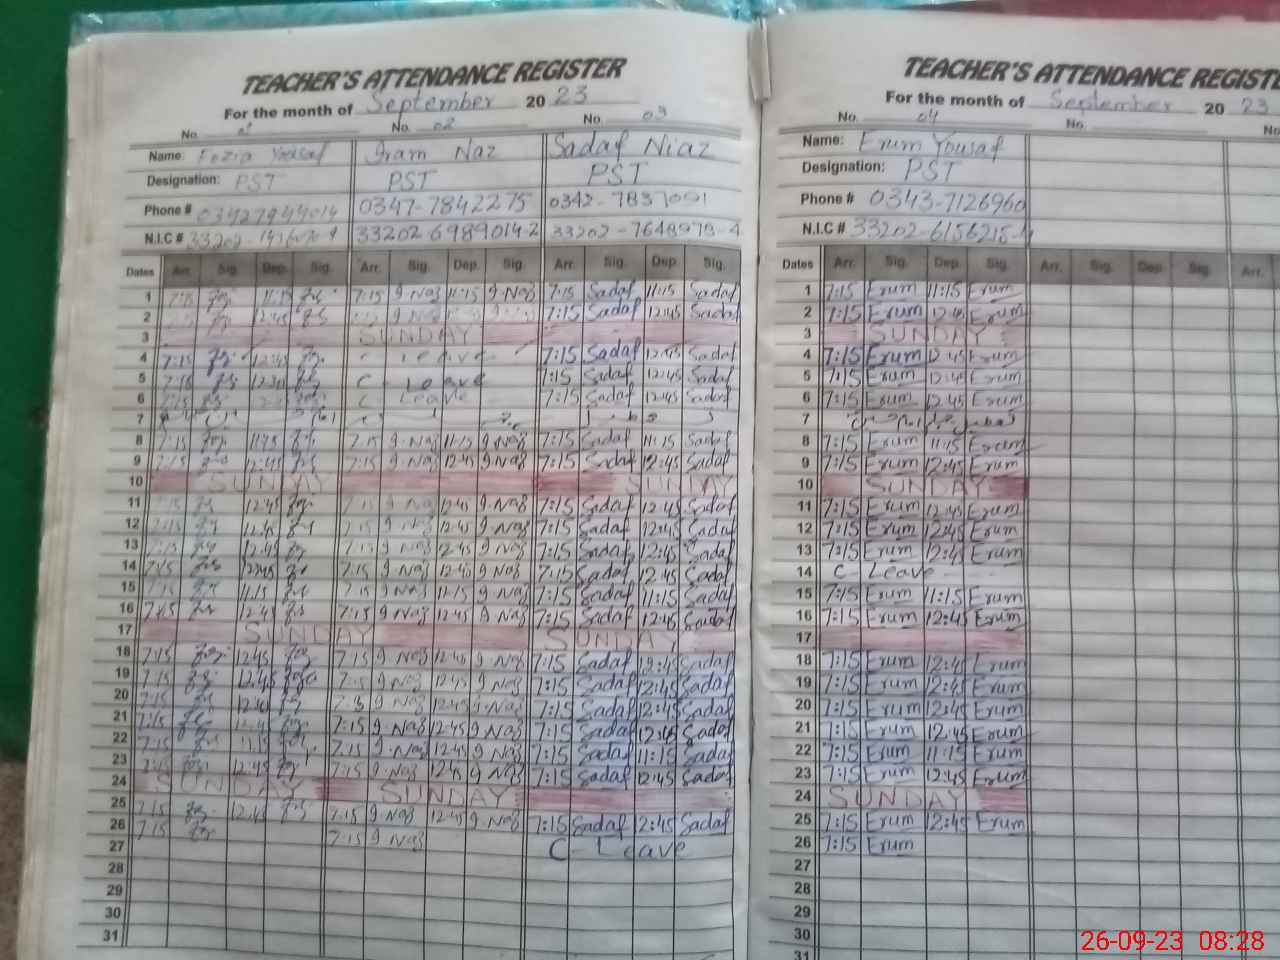 TEACHER'S ATTENDANCE REGISTER
For the month of September 20 23
No. 01 No. 02 No. 03
Name: Fozia Yousaf Iram Naz Sadaf Niaz
Designation: PST PST PST
Phone # 0347-7842275 0342-7837091
N.I.C # 33202-6989014-2 33202-7648978-4
Dates Arr. Sig. Dep. Sig. Arr. Sig. Dep. Sig. Arr. Sig. Dep. Sig.
1 7:15 11:15 7:15 I.Naz 11:15 I.Naz 7:15 Sadaf 11:15 Sadaf
2 12:45 7:15 Sadaf 12:45 Sadaf
3 SUNDAY
4 7:15 12:45 Leave 7:15 Sadaf 12:45 Sadaf
5 7:15 C - Leave 7:15 Sadaf 12:45 Sadaf
6 C Leave 7:15 Sadaf 12:45 Sadaf
7
8 7:15 7:15 I.Naz 11:15 I.Naz 7:15 Sadaf 11:15 Sadaf
9 7:15 12:45 7:15 I.Naz 12:45 I.Naz 7:15 Sadaf 12:45 Sadaf
10 SUNDAY SUNDAY
11 12:45 7:15 I.Naz 12:45 I.Naz 7:15 Sadaf 12:45 Sadaf
12 7:15 12:45 7:15 I.Naz 12:45 I.Naz 7:15 Sadaf 12:45 Sadaf
13 7:15 12:45 7:15 I.Naz 12:45 I.Naz 7:15 Sadaf 12:45 Sadaf
14 7:15 12:45 7:15 I.Naz 12:45 I.Naz 7:15 Sadaf 12:45 Sadaf
15 7:15 11:15 7:15 I.Naz 11:15 I.Naz 7:15 Sadaf 11:15 Sadaf
16 7:15 12:45 7:15 I.Naz 12:45 I.Naz 7:15 Sadaf 12:45 Sadaf
17 SUNDAY SUNDAY
18 7:15 12:45 7:15 I.Naz 12:45 I.Naz 7:15 Sadaf 12:45 Sadaf
19 7:15 12:45 7:15 I.Naz 12:45 I.Naz 7:15 Sadaf 12:45 Sadaf
20 7:15 12:45 I.Naz 12:45 I.Naz 7:15 Sadaf 12:45 Sadaf
21 7:15 12:45 7:15 I.Naz 12:45 I.Naz 7:15 Sadaf 12:45 Sadaf
22 7:15 11:15 7:15 I.Naz 12:45 I.Naz 7:15 Sadaf 11:15 Sadaf
23 7:15 12:45 7:15 I.Naz 12:45 I.Naz 7:15 Sadaf 12:45 Sadaf
24 SUNDAY SUNDAY
25 7:15 12:45 7:15 I.Naz 12:45 I.Naz 7:15 Sadaf 12:45 Sadaf
26 7:15 7:15 I.Naz C - Leave
27
28
29
30
31
TEACHER'S ATTENDANCE REGIST
For the month of September 20 23
No. 04 No. No
Name: Erum Yousaf
Designation: PST
Phone # 0343-7126960
N.I.C # 33202-6156215-4
Dates Arr. Sig. Dep. Sig. Arr. Sig. Dep. Sig. Arr.
1 7:15 Erum 11:15 Erum
2 7:15 Erum 12:45 Erum
3 SUNDAY
4 7:15 Erum 12:45 Erum
5 7:15 Erum 12:45 Erum
6 7:15 Erum 12:45 Erum
7
8 7:15 Erum 11:15 Erum
9 7:15 Erum 12:45 Erum
10 SUNDAY
11 7:15 Erum 12:45 Erum
12 7:15 Erum 12:45 Erum
13 7:15 Erum 12:45 Erum
14 C - Leave
15 7:15 Erum 11:15 Erum
16 7:15 Erum 12:45 Erum
17
18 7:15 Erum 12:45 Erum
19 7:15 Erum 12:45 Erum
20 7:15 Erum 12:45 Erum
21 7:15 Erum 12:45 Erum
22 7:15 Erum 11:15 Erum
23 7:15 Erum 12:45 Erum
24 SUNDAY
25 7:15 Erum 12:45 Erum
26 7:15 Erum
27
28
29
30
31
26-09-23 08:28